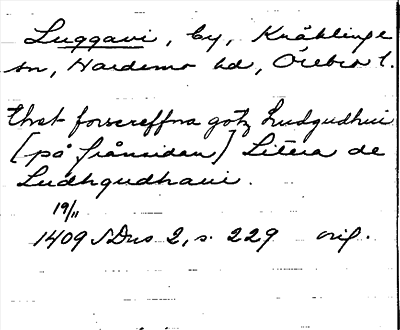 Luggavi, by, Kräklinge
sn, Hardemo hd, Örebro l.
thet forscreffna gotz Ludgudhui
[på frånsidan] Litera de
Ludhgudhaui.
19/11
1409 SDns 2, s. 229 orig.